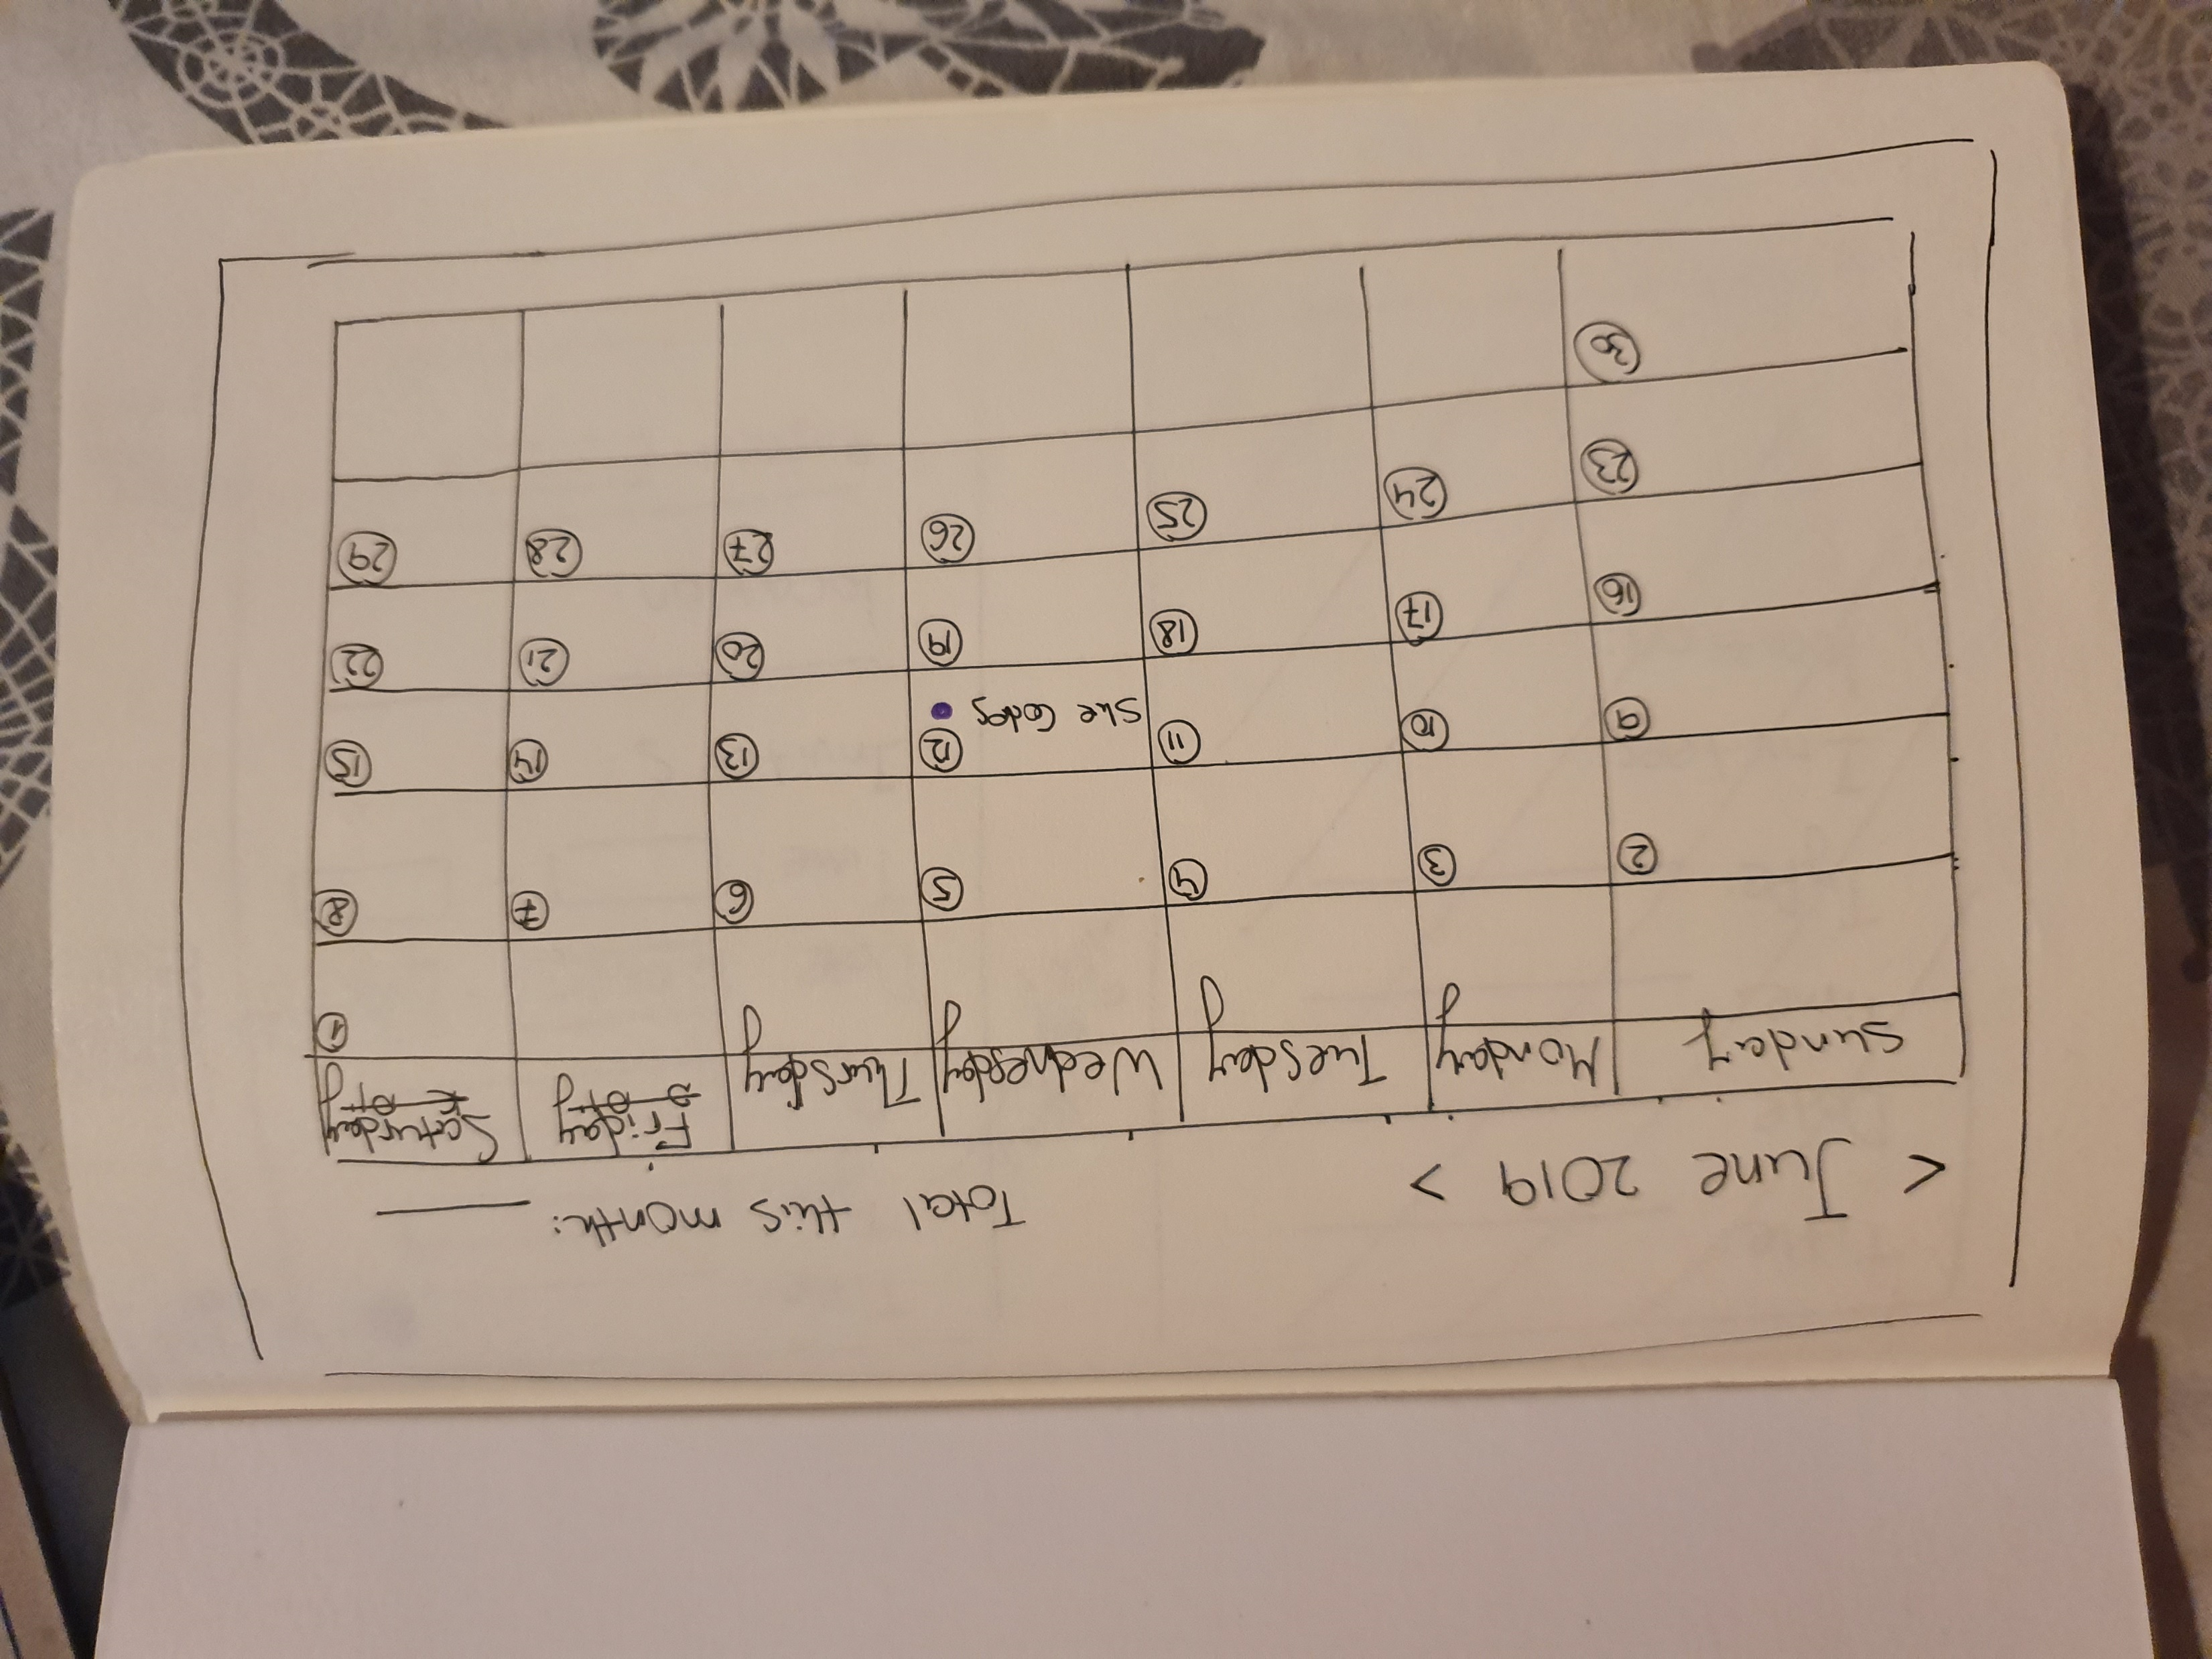 < June 2019 > Total this month:
Sunday Monday Tuesday Wednesday Thursday Friday Saturday
1
2 3 4 5 6 7 8
9 10 11 12 13 14 15
She Codes
16 17 18 19 20 21 22
23 24 25 26 27 28 29
30